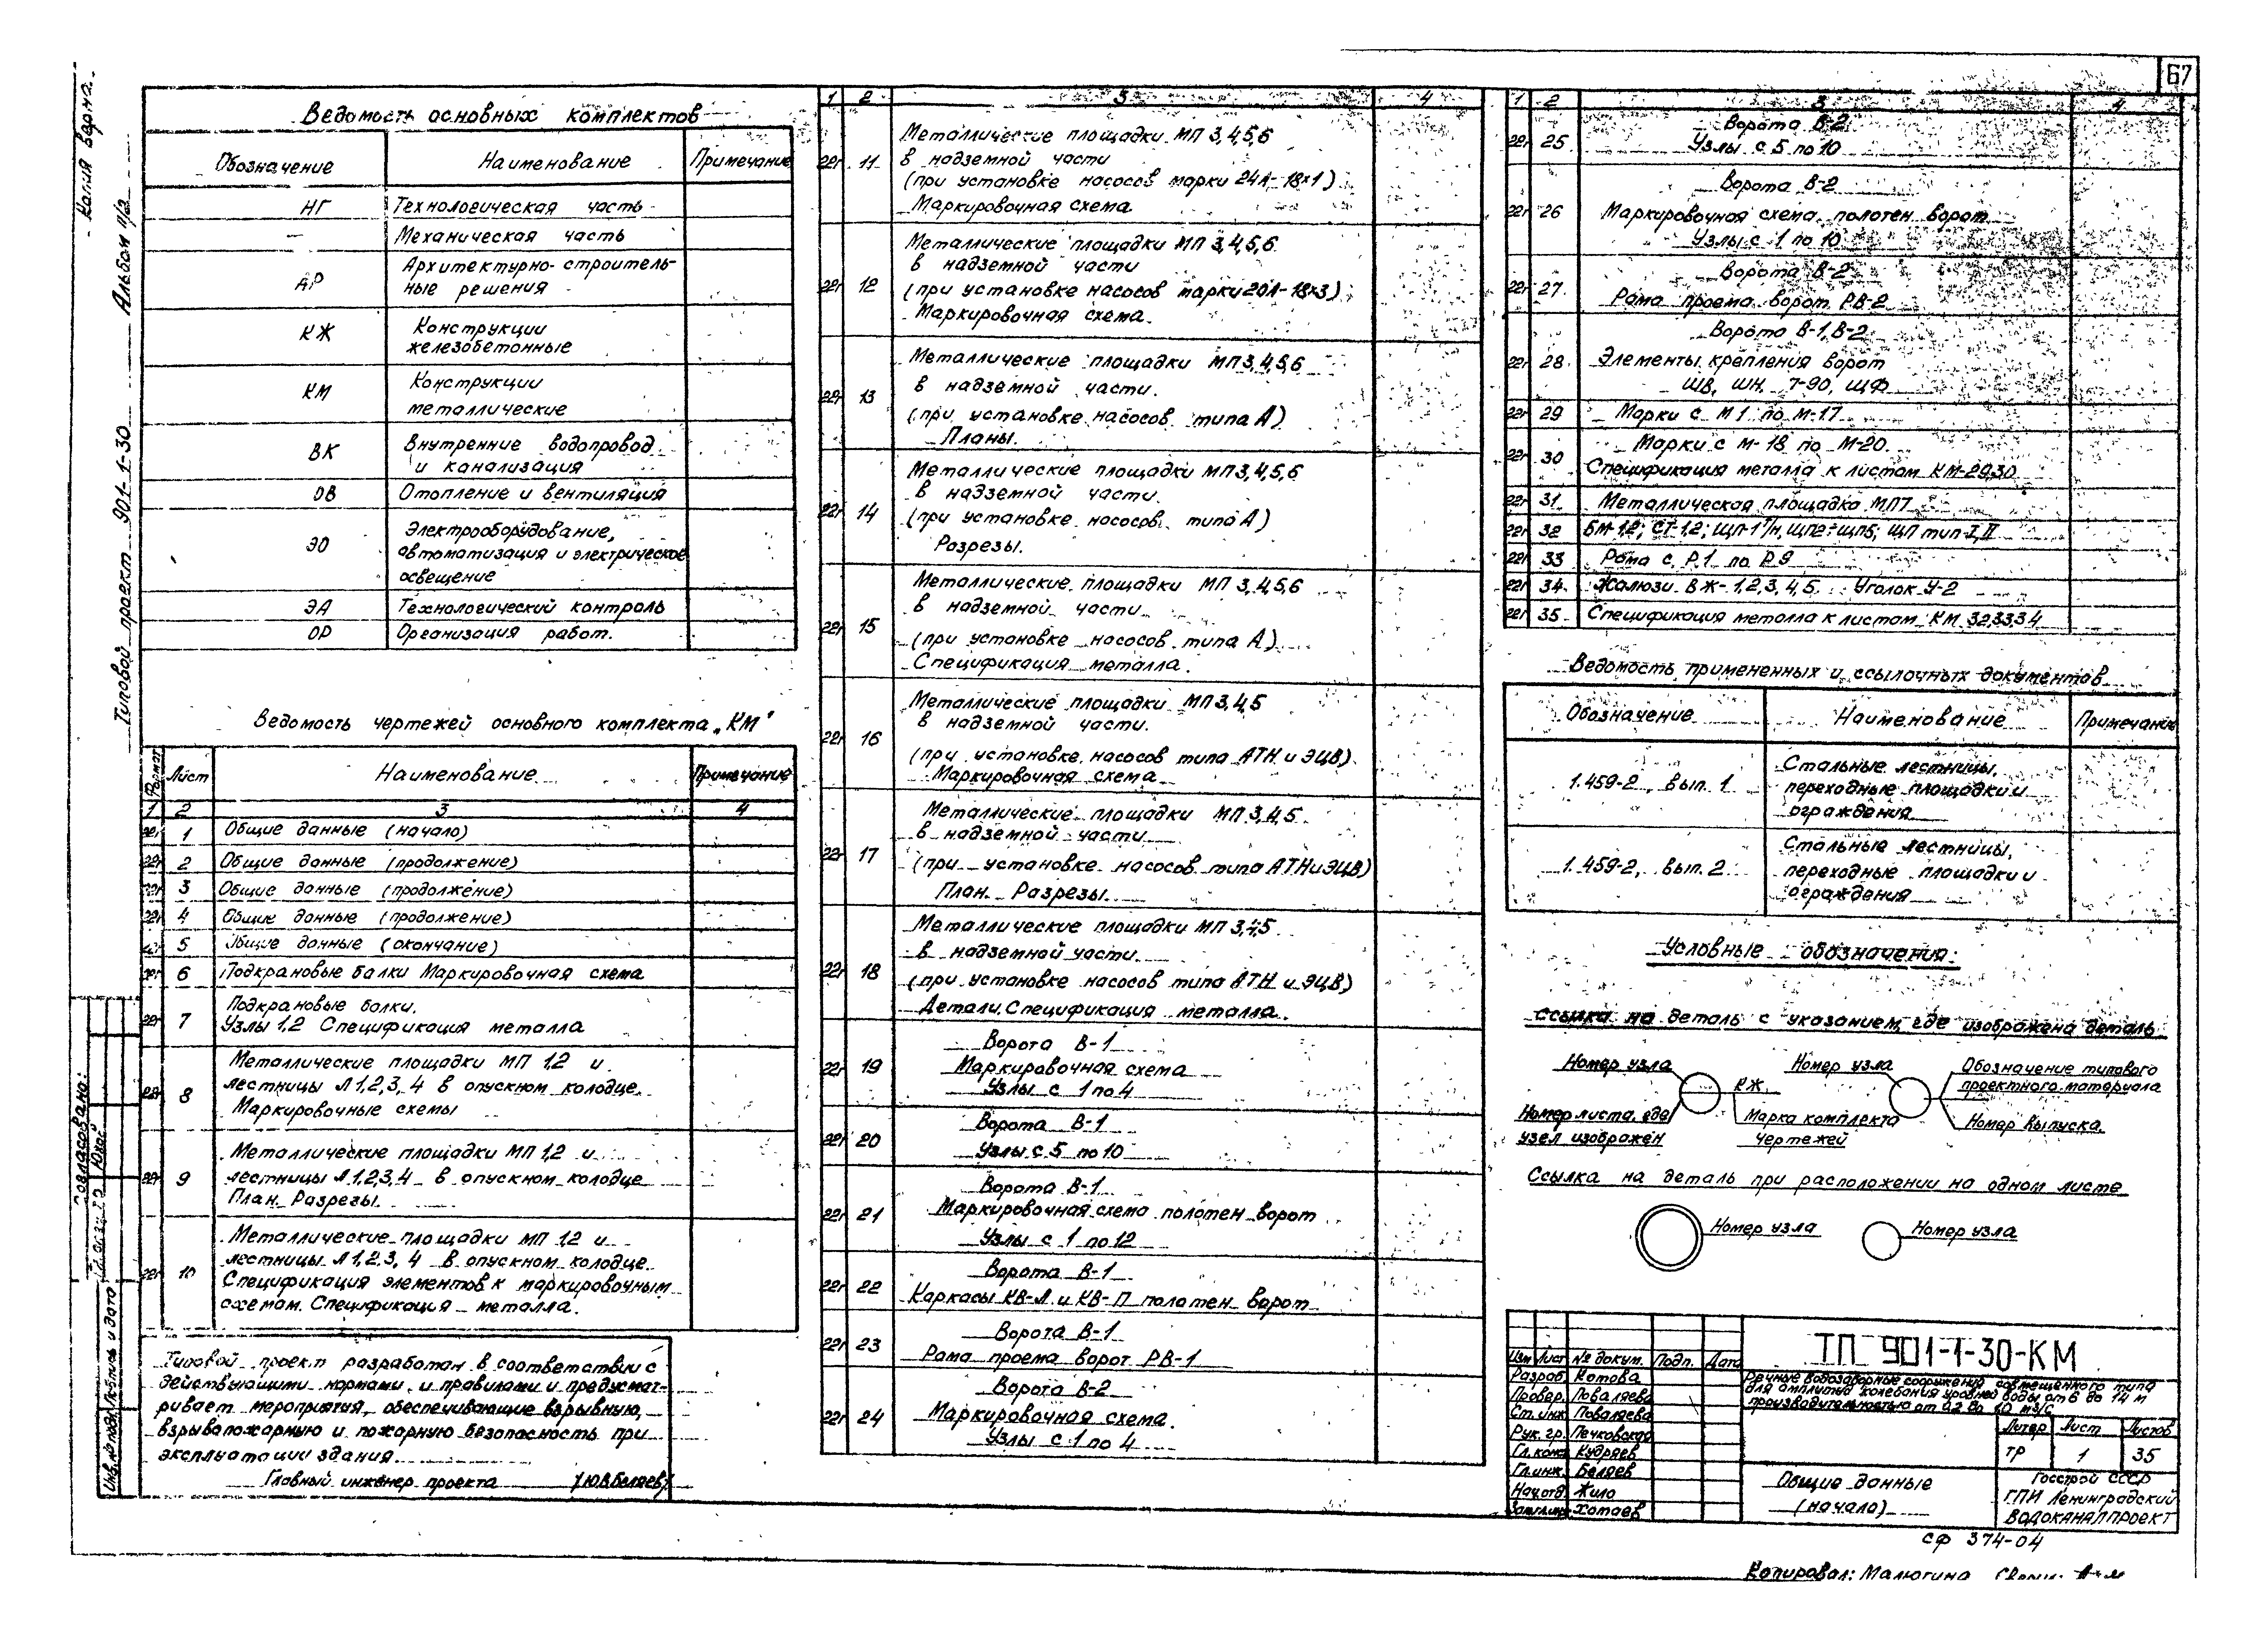 67
Копия верна.
Типовой проект 901-1-30 Альбом IV/2
Ведомость основных комплектов
Обозначение Наименование Примечание
НГ Технологическая часть
— Механическая часть
АР Архитектурно-строитель-
ные решения
КЖ Конструкции
железобетонные
КМ Конструкции
металлические
ВК Внутренние водопровод
и канализация
ОВ Отопление и вентиляция
ЭО Электрооборудование,
автоматизация и электрическое
освещение
ЭА Технологический контроль
ОР Организация работ.
Ведомость чертежей основного комплекта „КМ"
Формат Лист Наименование Примечание
1 2 3 4
22г 1 Общие данные (начало)
22г 2 Общие данные (продолжение)
22г 3 Общие данные (продолжение)
22г 4 Общие данные (продолжение)
22г 5 Общие данные (окончание)
22г 6 Подкрановые балки Маркировочная схема
22г 7 Подкрановые балки.
Узлы 1,2 Спецификация металла
22г 8 Металлические площадки МП 1,2 и
лестницы Л 1,2,3,4 в опускном колодце.
Маркировочные схемы
22г 9 Металлические площадки МП 1,2 и
лестницы Л 1,2,3,4 в опускном колодце
План. Разрезы.
22г 10 Металлические площадки МП 1,2 и
лестницы Л 1,2,3,4 в опускном колодце.
Спецификация элементов к маркировочным
схемам. Спецификация металла.
Типовой проект разработан в соответствии с
действующими нормами и правилами и предусмат-
ривает мероприятия, обеспечивающие взрывную,
взрывопожарную и пожарную безопасность при
эксплуатации здания
Главный инженер проекта /Ю.В.Беляев/
Согласовано:
Инв.№ подл. Подпись и дата
1 2 3 4
22г 11 Металлические площадки МП 3,4,5,6
в надземной части
(при установке насосов марки 24А-18×1)
Маркировочная схема
22г 12 Металлические площадки МП 3,4,5,6
в надземной части
(при установке насосов марки 20А-18×3)
Маркировочная схема.
22г 13 Металлические площадки МП 3,4,5,6
в надземной части.
(при установке насосов типа А)
Планы.
22г 14 Металлические площадки МП 3,4,5,6
в надземной части.
(при установке насосов типа А)
Разрезы.
22г 15 Металлические площадки МП 3,4,5,6
в надземной части
(при установке насосов типа А)
Спецификация металла.
22г 16 Металлические площадки МП 3,4,5
в надземной части.
(при установке насосов типа АТН и ЭЦВ)
Маркировочная схема
22г 17 Металлические площадки МП 3,4,5
в надземной части
(при установке насосов типа АТН и ЭЦВ)
План. Разрезы.
22г 18 Металлические площадки МП 3,4,5
в надземной части.
(при установке насосов типа АТН и ЭЦВ)
Детали. Спецификация металла.
22г 19 Ворота В-1
Маркировочная схема
Узлы с 1 по 4
22г 20 Ворота В-1
Узлы с 5 по 10
22г 21 Ворота В-1
Маркировочная схема полотен ворот
Узлы с 1 по 12
22г 22 Ворота В-1
Каркасы КВ-Л и КВ-П полотен ворот
22г 23 Ворота В-1
Рама проема ворот РВ-1
22г 24 Ворота В-2
Маркировочная схема.
Узлы с 1 по 4
1 2 3 4
22г 25 Ворота В-2
Узлы с 5 по 10
22г 26 Ворота В-2
Маркировочная схема полотен ворот
Узлы с 1 по 10
22г 27 Ворота В-2
Рама проема ворот РВ-2
22г 28 Ворота В-1, В-2
Элементы крепления ворот
ШВ, ШН, Т-90, ЩФ
22г 29 Марки с М 1 по М-17
22г 30 Марки с М-18 по М-20.
Спецификация металла к листам КМ-29,30
22г 31 Металлическая площадка МП7
22г 32 БМ-1,2; СТ-1,2; ЩП-1 т/н, ЩП2÷ЩП5; ЩП тип-I,II
22г 33 Рама с Р.1 по Р.9
22г 34 Жалюзи ВЖ-1,2,3,4,5. Уголок У-2
22г 35 Спецификация металла к листам КМ 32,33,34
Ведомость примененных и ссылочных документов
Обозначение Наименование Примечание
1.459-2, вып. 1 Стальные лестницы,
переходные площадки и
ограждения
1.459-2, вып. 2 Стальные лестницы,
переходные площадки и
ограждения
Условные обозначения:
Ссылка на деталь с указанием, где изображена деталь
Номер узла КЖ
Номер листа, где узел изображен
Марка комплекта чертежей
Номер узла
Обозначение типового проектного материала
Номер выпуска
Ссылка на деталь при расположении на одном листе
Номер узла Номер узла
Изм Лист № докум. Подп. Дата
Разраб. Котова
Провер. Поваляева
Ст. инж. Поваляева
Рук. гр. Печковская
Гл. конс Кудряев
Гл. инж. Беляев
Нач. отд. Жила
Хотаев
ТП 901-1-30-КМ
Речные водозаборные сооружения совмещенного типа
для амплитуд колебания уровней воды от 6 до 14 м
производительностью от 0,2 до 1,0 м3/с
Литер Лист Листов
ТР 1 35
Общие данные
(начало)
Госстрой СССР
ГПИ Ленинградский
ВОДОКАНАЛПРОЕКТ
СФ 374-04
Копировал: Малюгина